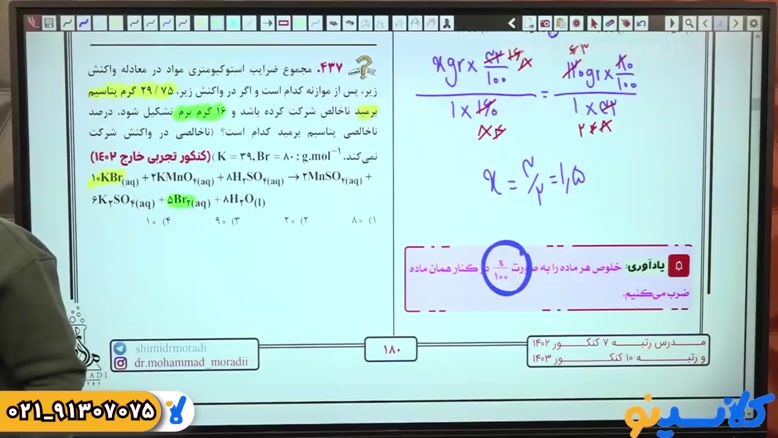 ۴۳۷. مجموع ضرایب استوکیومتری مواد در معادله واکنش
زیر، پس از موازنه کدام است و اگر در واکنش زیر، ۲۹/۷۵ گرم پتاسیم
برمید ناخالص شرکت کرده باشد و ۱۶ گرم برم تشکیل شود، درصد
ناخالصی پتاسیم برمید کدام است؟ (ناخالصی در واکنش شرکت
نمی‌کند. K = ۳۹, Br = ۸۰ : g.mol⁻¹) (کنکور تجربی خارج ۱۴۰۲)
۱۰KBr(aq) + ۲KMnO₴(aq) + ۸H₂SO₴(aq) → ۲MnSO₴(aq) +
۶K₂SO₴(aq) + ۵Br₂(aq) + ۸H₂O(l)
۱) ۸۰ ۲) ۲۰ ۳) ۹۰ ۴) ۱۰
x = ۳/۲ = ۱,۵
یادآوری: خلوص هر ماده را به صورت x/۱۰۰ در کنار همان ماده
ضرب می‌کنیم.
shimidrmoradi
dr.mohammad_moradii
۱۸۰
مدرس رتبه ۷ کنکور ۱۴۰۲
و رتبه ۱۰ کنکور ۱۴۰۳
۰۲۱_۹۱۳۰۷۰۷۵
کلاسینو